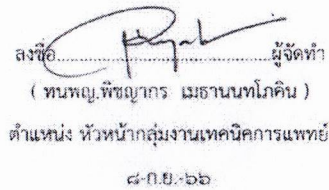 ลงชื่อ..........................................ผู้จัดทำ
( ทนพญ.พิชญากร เมธานนทโภคิน )
ตำแหน่ง หัวหน้ากลุ่มงานเทคนิคการแพทย์
๘-ก.ย.-๖๖